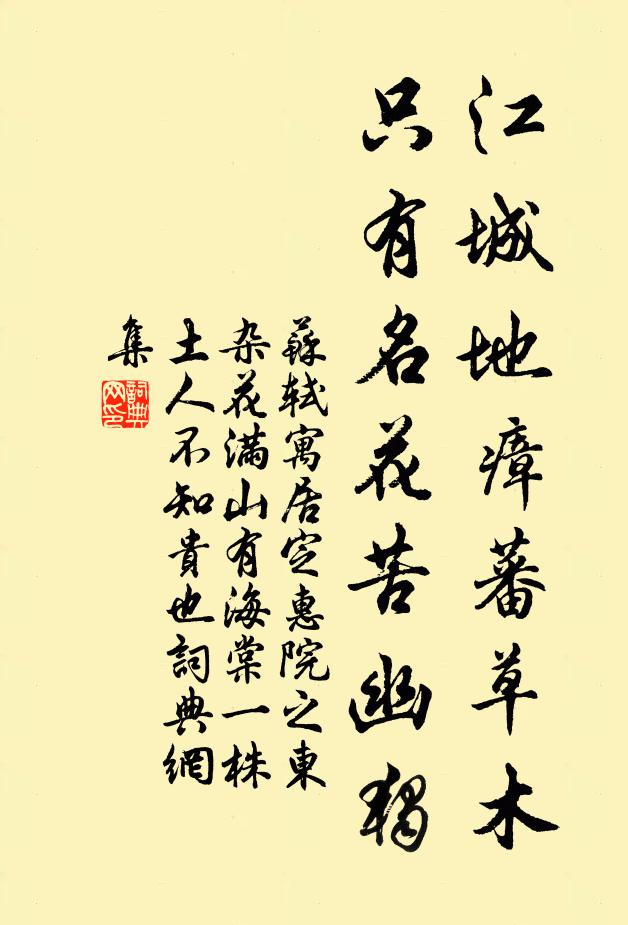 江城地瘴蕃草木
只有名花苦幽獨
蘇軾寓居定惠院之東
杂花滿山有海棠一株
土人不知貴也詞典網
集
詞典
网印